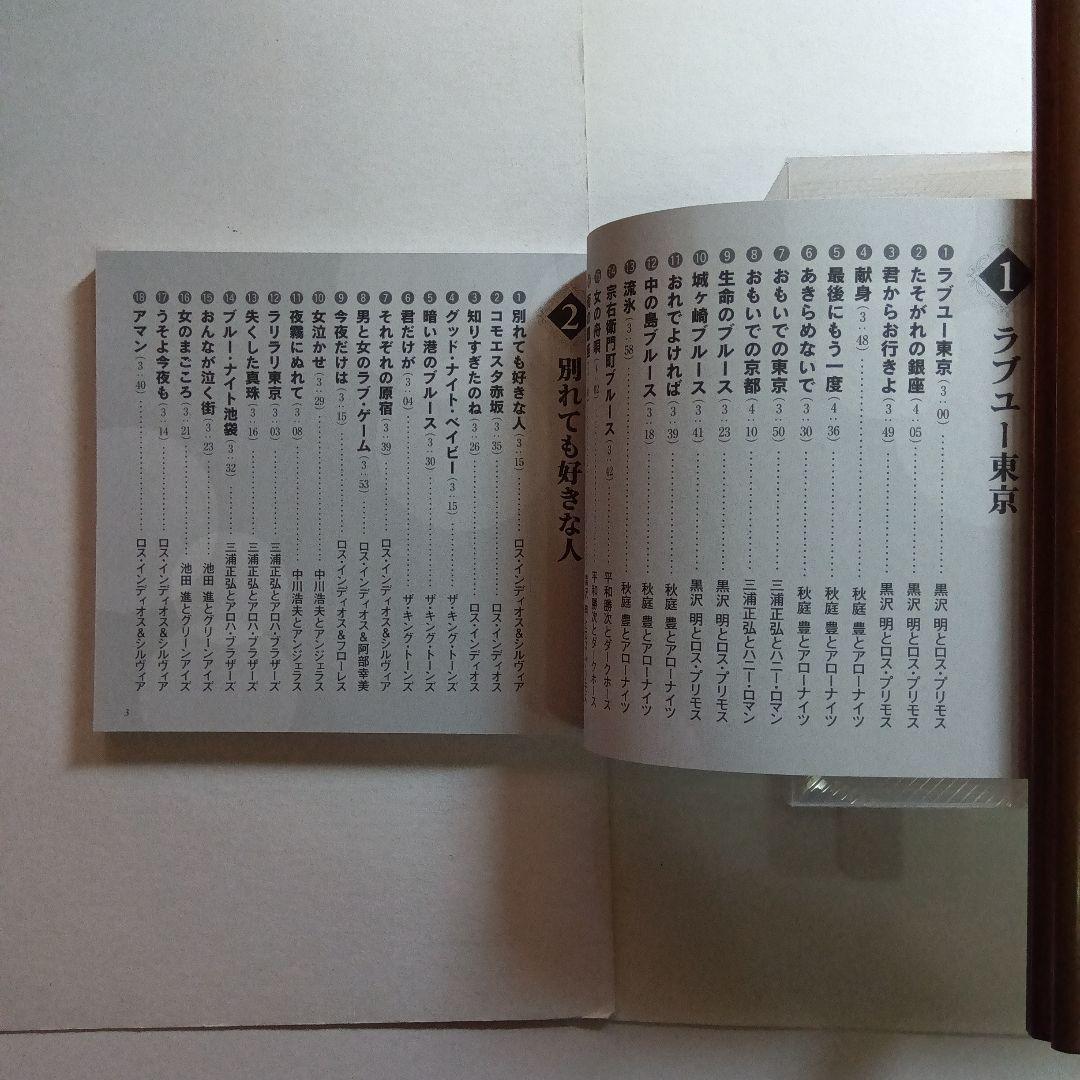 1 ラブユー東京
❶ ラブユー東京(3:00)……黒沢 明とロス・プリモス
❷ たそがれの銀座(4:05)……黒沢 明とロス・プリモス
❸ 君からお行きよ(3:49)……黒沢 明とロス・プリモス
❹ 献身(3:48)……秋庭 豊とアローナイツ
❺ 最後にもう一度(4:36)……秋庭 豊とアローナイツ
❻ あきらめないで(3:30)……秋庭 豊とアローナイツ
❼ おもいでの東京(3:50)……三浦正弘とハニー・ロマン
❽ おもいでの京都(4:10)……三浦正弘とハニー・ロマン
❾ 生命のブルース(3:23)……黒沢 明とロス・プリモス
❿ 城ヶ崎ブルース(3:41)……黒沢 明とロス・プリモス
⓫ おれでよければ(3:39)……秋庭 豊とアローナイツ
⓬ 中の島ブルース(3:18)……秋庭 豊とアローナイツ
⓭ 流氷(3:58)……秋庭 豊とアローナイツ
⓮ 宗右衛門町ブルース(3:42)……平和勝次とダークホース
⓯ 女の舟唄……平和勝次とダークホース
2 別れても好きな人
❶ 別れても好きな人(3:15)……ロス・インディオス&シルヴィア
❷ コモエスタ赤坂(3:35)……ロス・インディオス
❸ 知りすぎたのね(3:26)……ロス・インディオス
❹ グッド・ナイト・ベイビー(3:15)……ザ・キング・トーンズ
❺ 暗い港のブルース(3:30)……ザ・キング・トーンズ
❻ 君だけが(3:04)……ザ・キング・トーンズ
❼ それぞれの原宿(3:39)……ロス・インディオス&シルヴィア
❽ 男と女のラブ・ゲーム(3:53)……ロス・インディオス&阿部幸美
❾ 今夜だけは(3:15)……ロス・インディオス&フローレス
❿ 女泣かせ(3:29)……中川浩夫とアンジェラス
⓫ 夜霧にぬれて(3:08)……中川浩夫とアンジェラス
⓬ ラリラリ東京(3:03)……三浦正弘とアロハ・ブラザーズ
⓭ 失くした真珠(3:16)……三浦正弘とアロハ・ブラザーズ
⓮ ブルー・ナイト池袋(3:32)……三浦正弘とアロハ・ブラザーズ
⓯ おんなが泣く街(3:23)……池田 進とグリーンアイズ
⓰ 女のまごころ(3:21)……池田 進とグリーンアイズ
⓱ うそよ今夜も(3:14)……ロス・インディオス&シルヴィア
⓲ アマン(3:40)……ロス・インディオス&シルヴィア
3